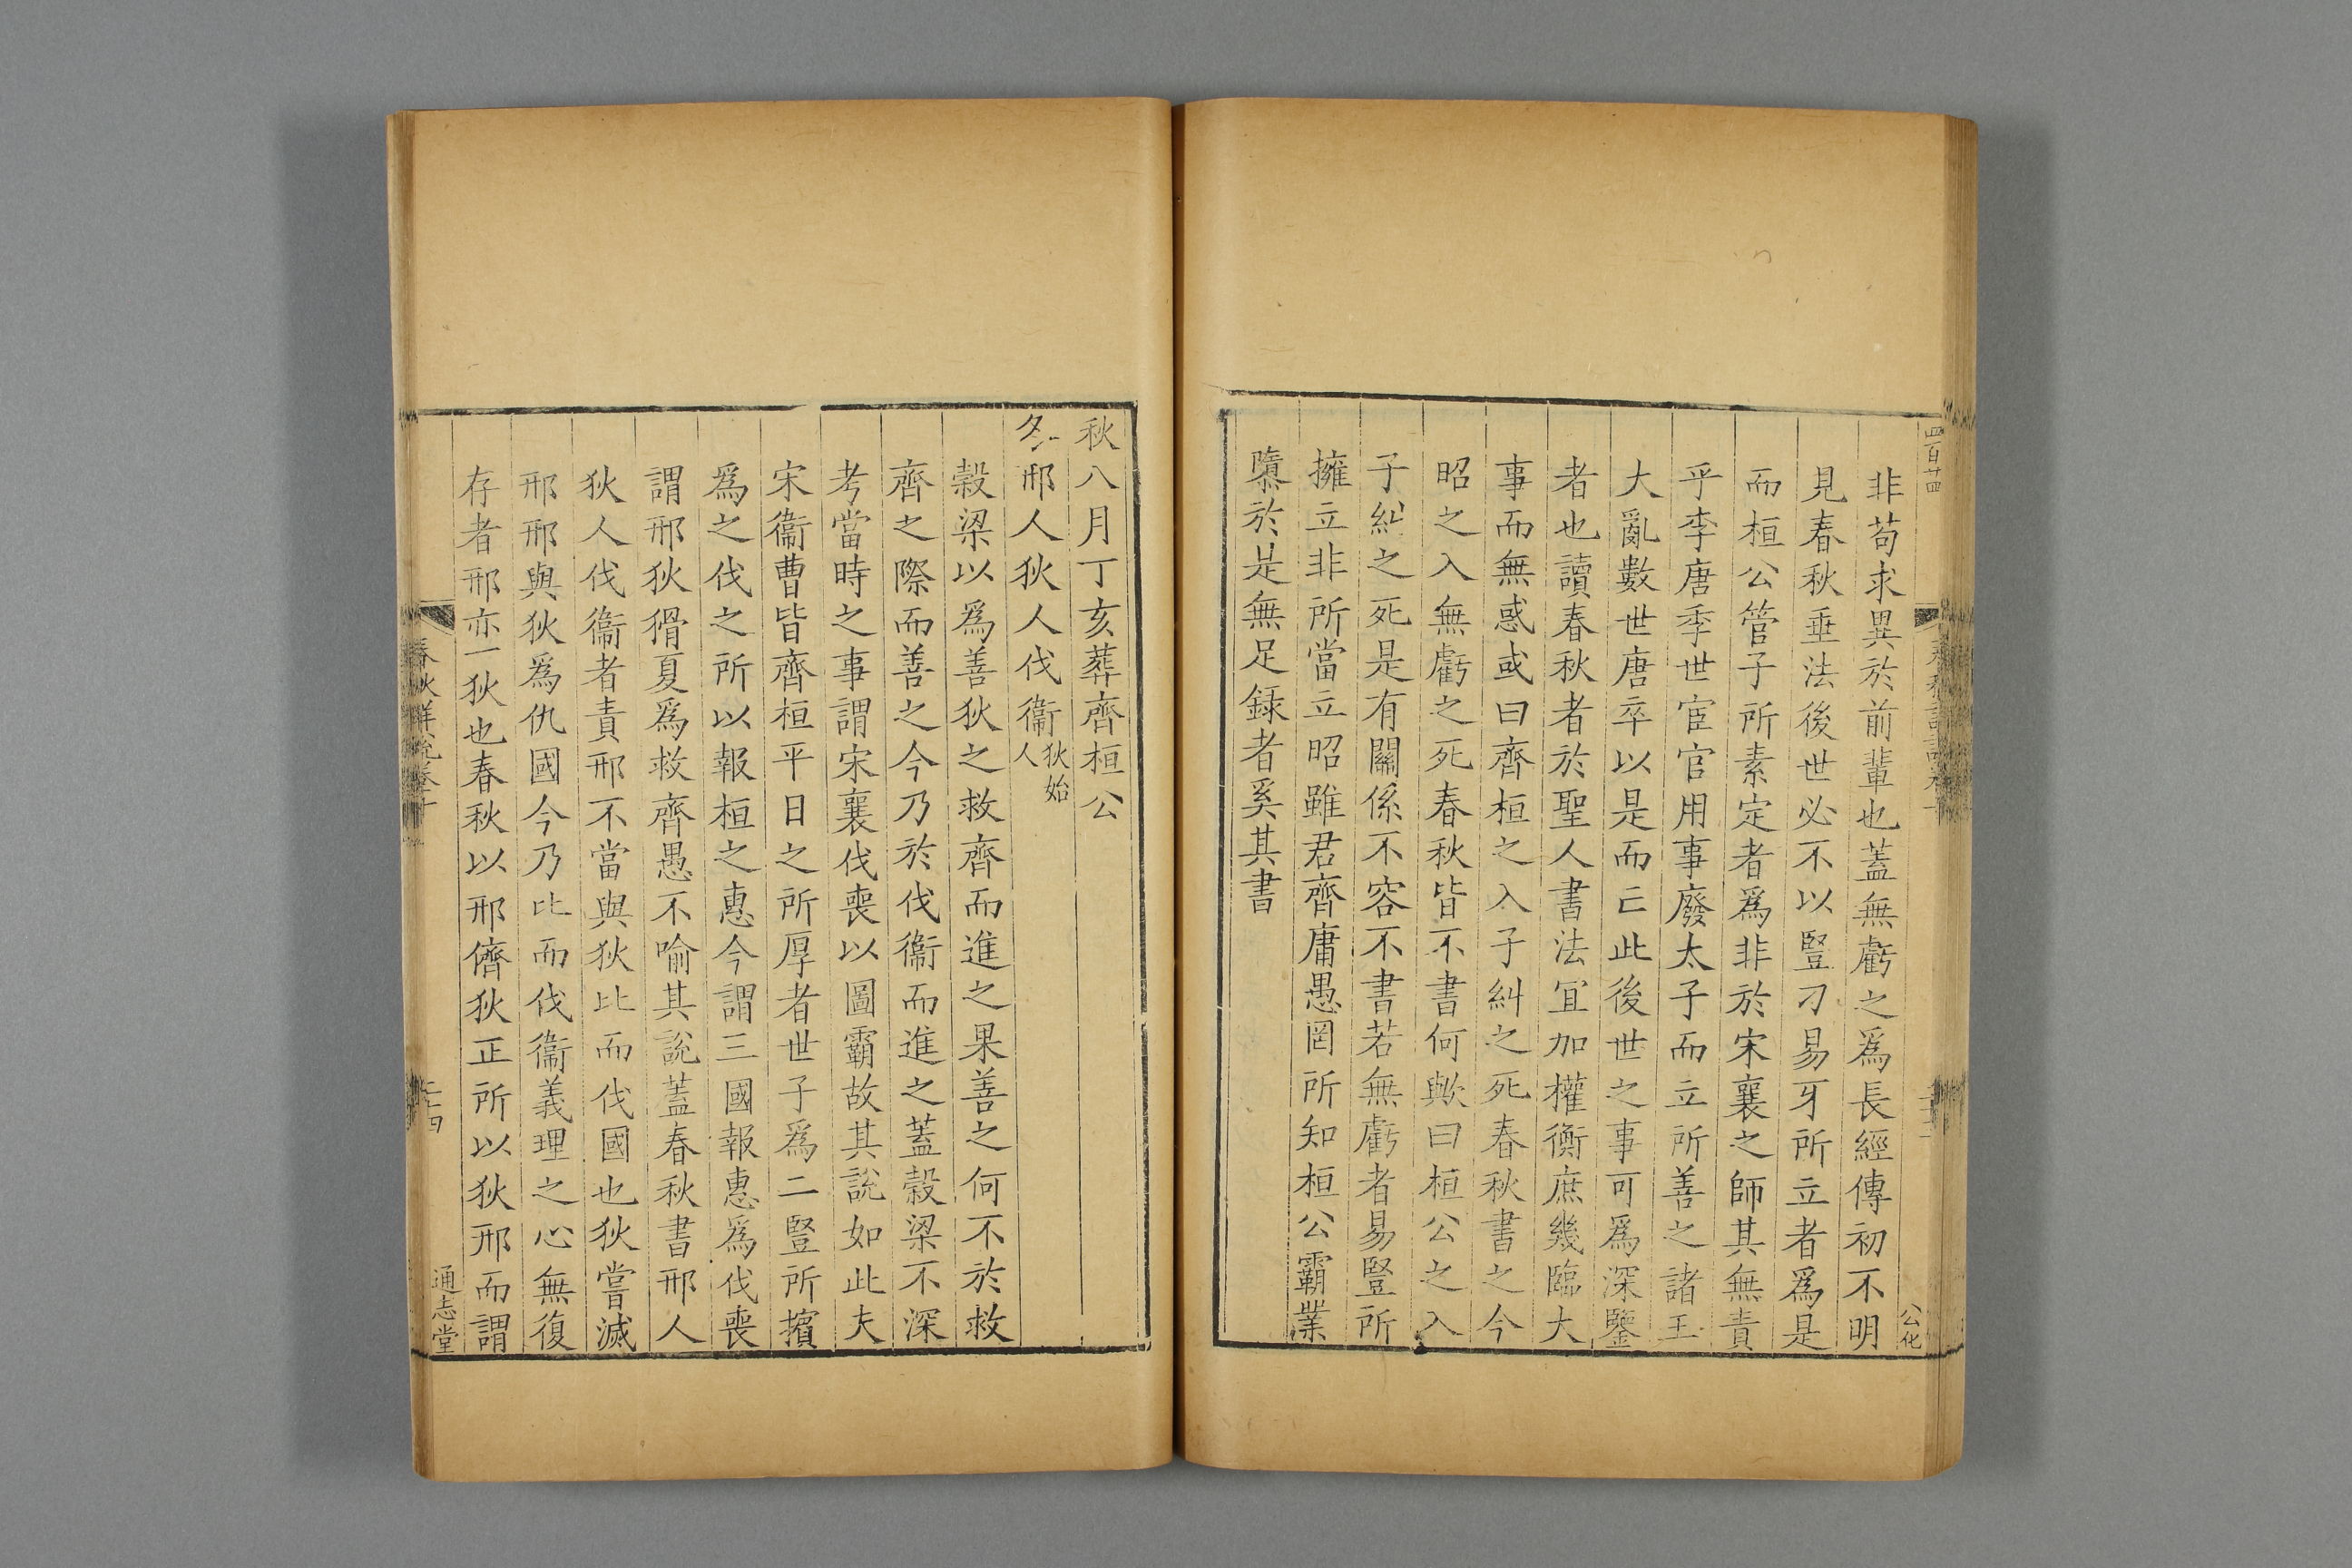 四百廿四
公化
非苟求異於前輩也蓋無虧之爲長經傳初不明
見春秋垂法後世必不以豎刁易牙所立者爲是
而桓公管子所素定者爲非於宋襄之師其無責
乎李唐季世宦官用事廢太子而立所善之諸王
大亂數世唐卒以是而亡此後世之事可爲深鑒
者也讀春秋者於聖人書法宜加權衡庶幾臨大
事而無惑或曰齊桓之入子糾之死春秋書之今
昭之入無虧之死春秋皆不書何歟曰桓公之入
子糾之死是有關係不容不書若無虧者易豎所
擁立非所當立昭雖君齊庸愚罔所知桓公霸業
隳於是無足録者奚其書
秋八月丁亥葬齊桓公
冬邢人狄人伐衞狄始人
穀梁以爲善狄之救齊而進之果善之何不於救
齊之際而善之今乃於伐衞而進之蓋穀梁不深
考當時之事謂宋襄伐喪以圖霸故其說如此夫
宋衞曹皆齊桓平日之所厚者世子爲二豎所擯
爲之伐之所以報桓之惠今謂三國報惠爲伐喪
謂邢狄猾夏爲救齊愚不喻其說蓋春秋書邢人
狄人伐衞者責邢不當與狄比而伐國也狄嘗滅
邢邢與狄爲仇國今乃比而伐衞義理之心無復
存者邢亦一狄也春秋以邢儕狄正所以狄邢而謂
春秋詳說卷十
通志堂